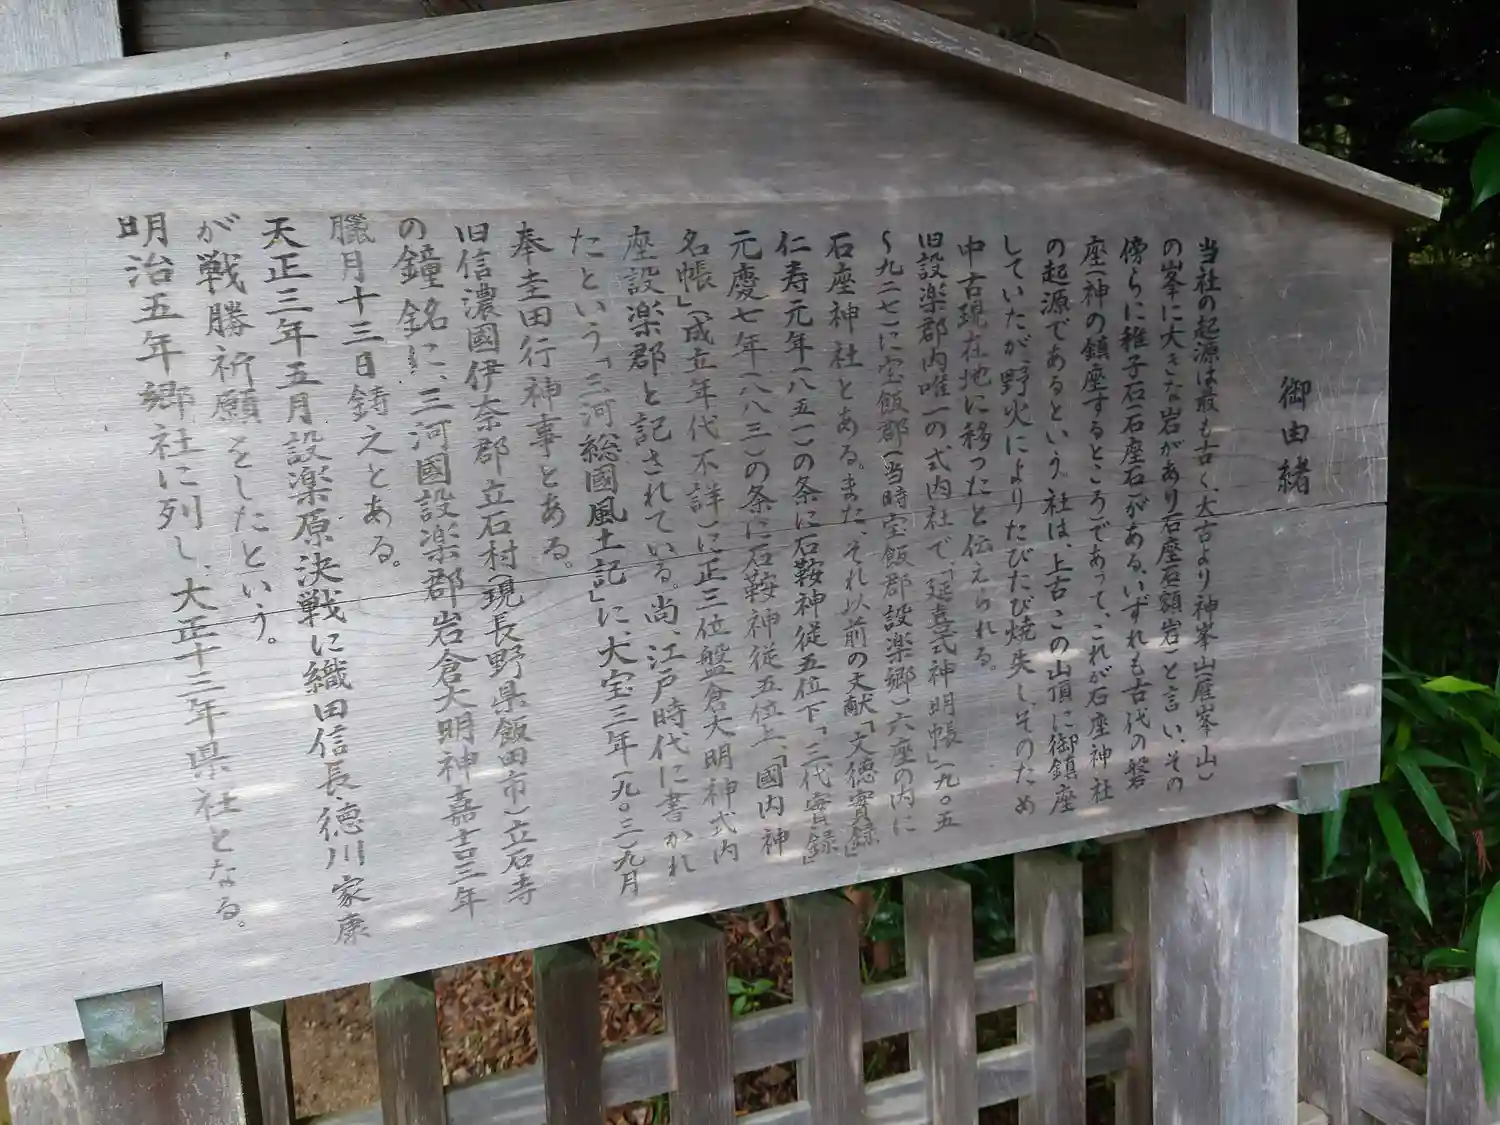 御由緒
当社の起源は最も古く、大古より神峯山(雁峯山)
の峯に大きな岩があり石座石(額岩)と言い、その
傍らに稚子石(石座石)がある、いずれも古代の磐
座(神の鎮座するところ)であって、これが石座神社
の起源であるという。社は、上古この山頂に御鎮座
していたが野火によりたびたび焼失し、そのため
中古現在地に移ったと伝えられる。
旧設楽郡内唯一の、式内社で、「延喜式神明帳」(九〇五
〜九二七)に宝飯郡(当時宝飯郡設楽郷)六座の内に
石座神社とある。また、それ以前の文献「文徳實録」
仁寿元年(八五一)の条に石鞍神従五位下「三代實録」
元慶七年(八八三)の条に石鞍神従五位上、「國内神
名帳」(成立年代不詳)に正三位盤倉大明神式内
座設楽郡と記されている。尚、江戸時代に書かれ
たという「三河総國風土記」に、大宝三年(九〇三)九月
奉圭田行神事とある。
旧信濃國伊奈郡立石村(現長野県飯田市)立石寺
の鐘銘に、三河國設楽郡岩倉大明神嘉吉三年
臘月十三日鋳之とある。
天正三年五月設楽原決戦に織田信長徳川家康
が戦勝祈願をしたという。
明治五年郷社に列し、大正十三年県社となる。